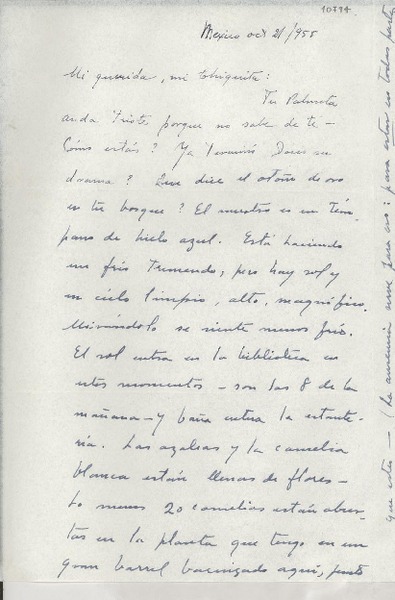 10794
Mexico oct 21/955
Mi querida, mi Chiquita:
Tu Palmita
anda triste porque no sabe de ti –
Cómo estás? Ya terminó Doris su
drama? Que dice el otoño de oro
en tu bosque? El nuestro es un tém-
pano de hielo azul. Está haciendo
un frío tremendo; pero hay sol y
un cielo limpio, alto, magnífico.
Mirándolo se siente menos frío.
El sol entra en la biblioteca en
estos momentos – son las 8 de la
mañana – y baña entera la estante-
ría. Las azaleas y la camelia
blanca están llenas de flores –
Lo menos 20 camelias están abier-
tas en la planta que tengo en un
gran barril barnizado aquí, junto
que esta – (la ausencia sirve para eso: para estar en todas partes